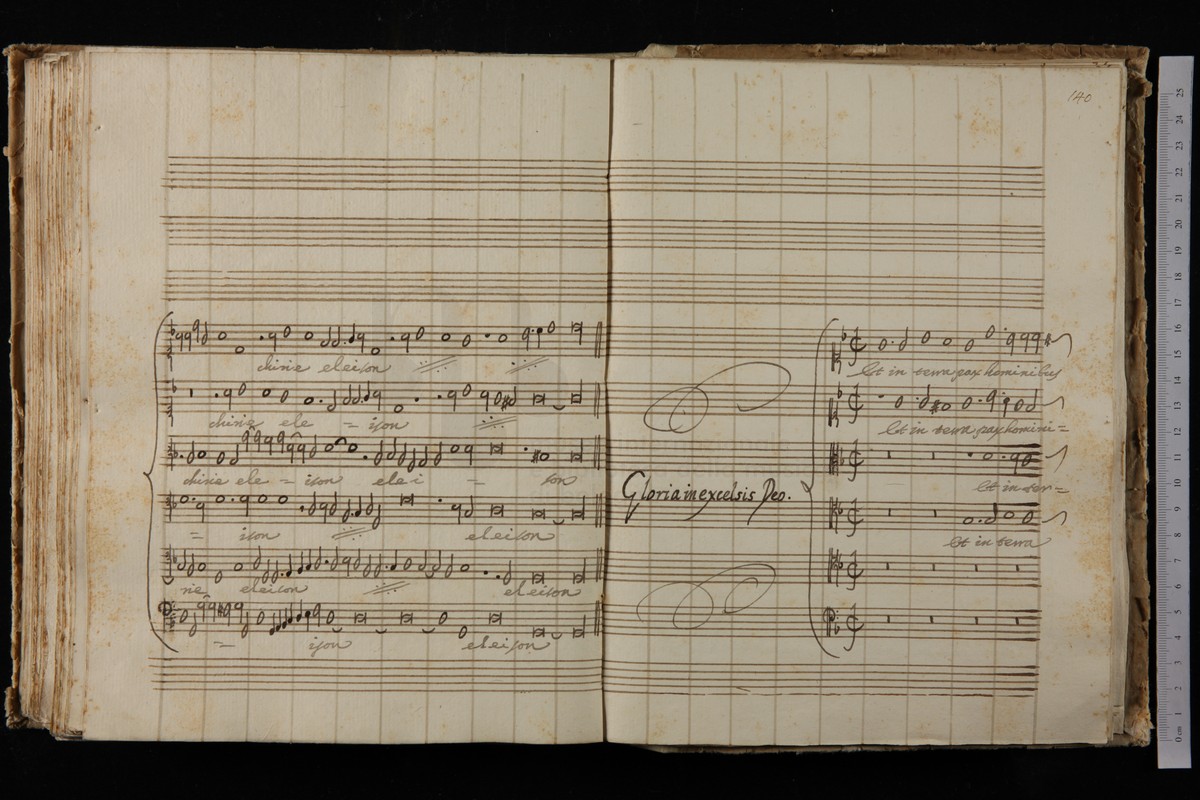 140
christe eleison
christe ele = ison
christe ele = ison elei - son
= ison eleison
ste eleison eleison
= ison eleison
Gloria in excelsis Deo.
Et in terra pax hominibus
Et in terra pax homini=
Et in ter=
Et in terra
0 cm 1 2 3 4 5 6 7 8 9 10 11 12 13 14 15 16 17 18 19 20 21 22 23 24 25